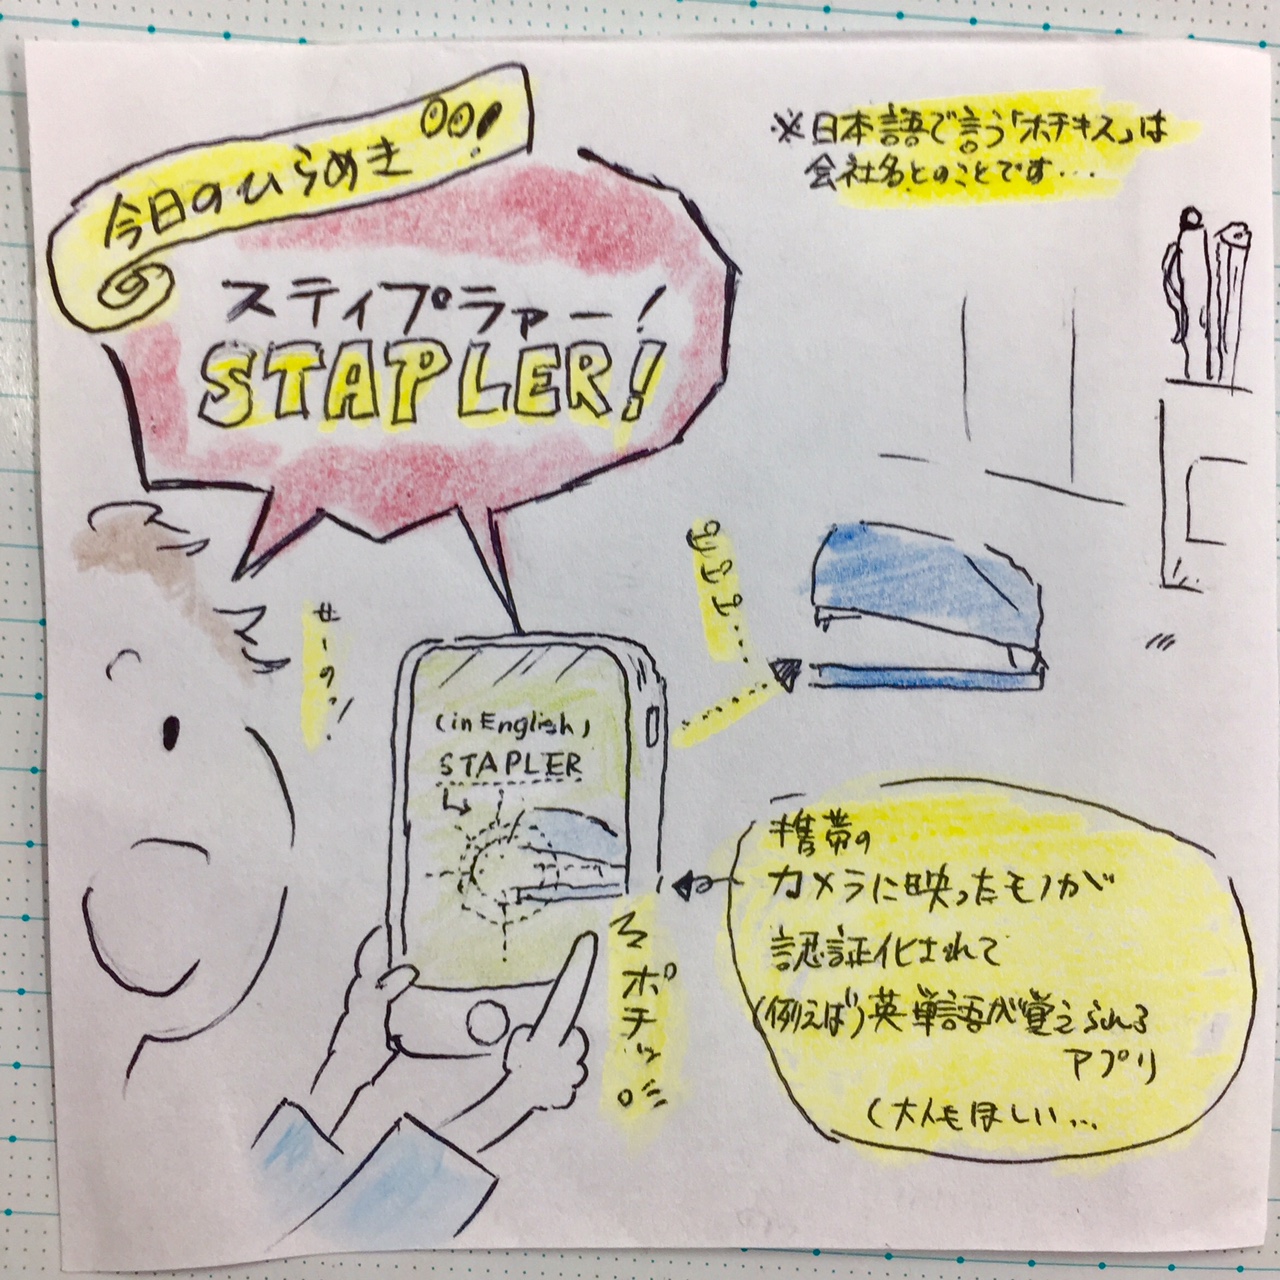 今日のひらめき!
スティプラァー!
STAPLER!
※日本語で言う「ホチキス」は
会社名とのことです...
せーの!
(in English)
STAPLER
ポチッ
携帯の
カメラに映ったモノが
認証化されて
(例えば)英単語が覚えられる
アプリ
(大人もほしい...